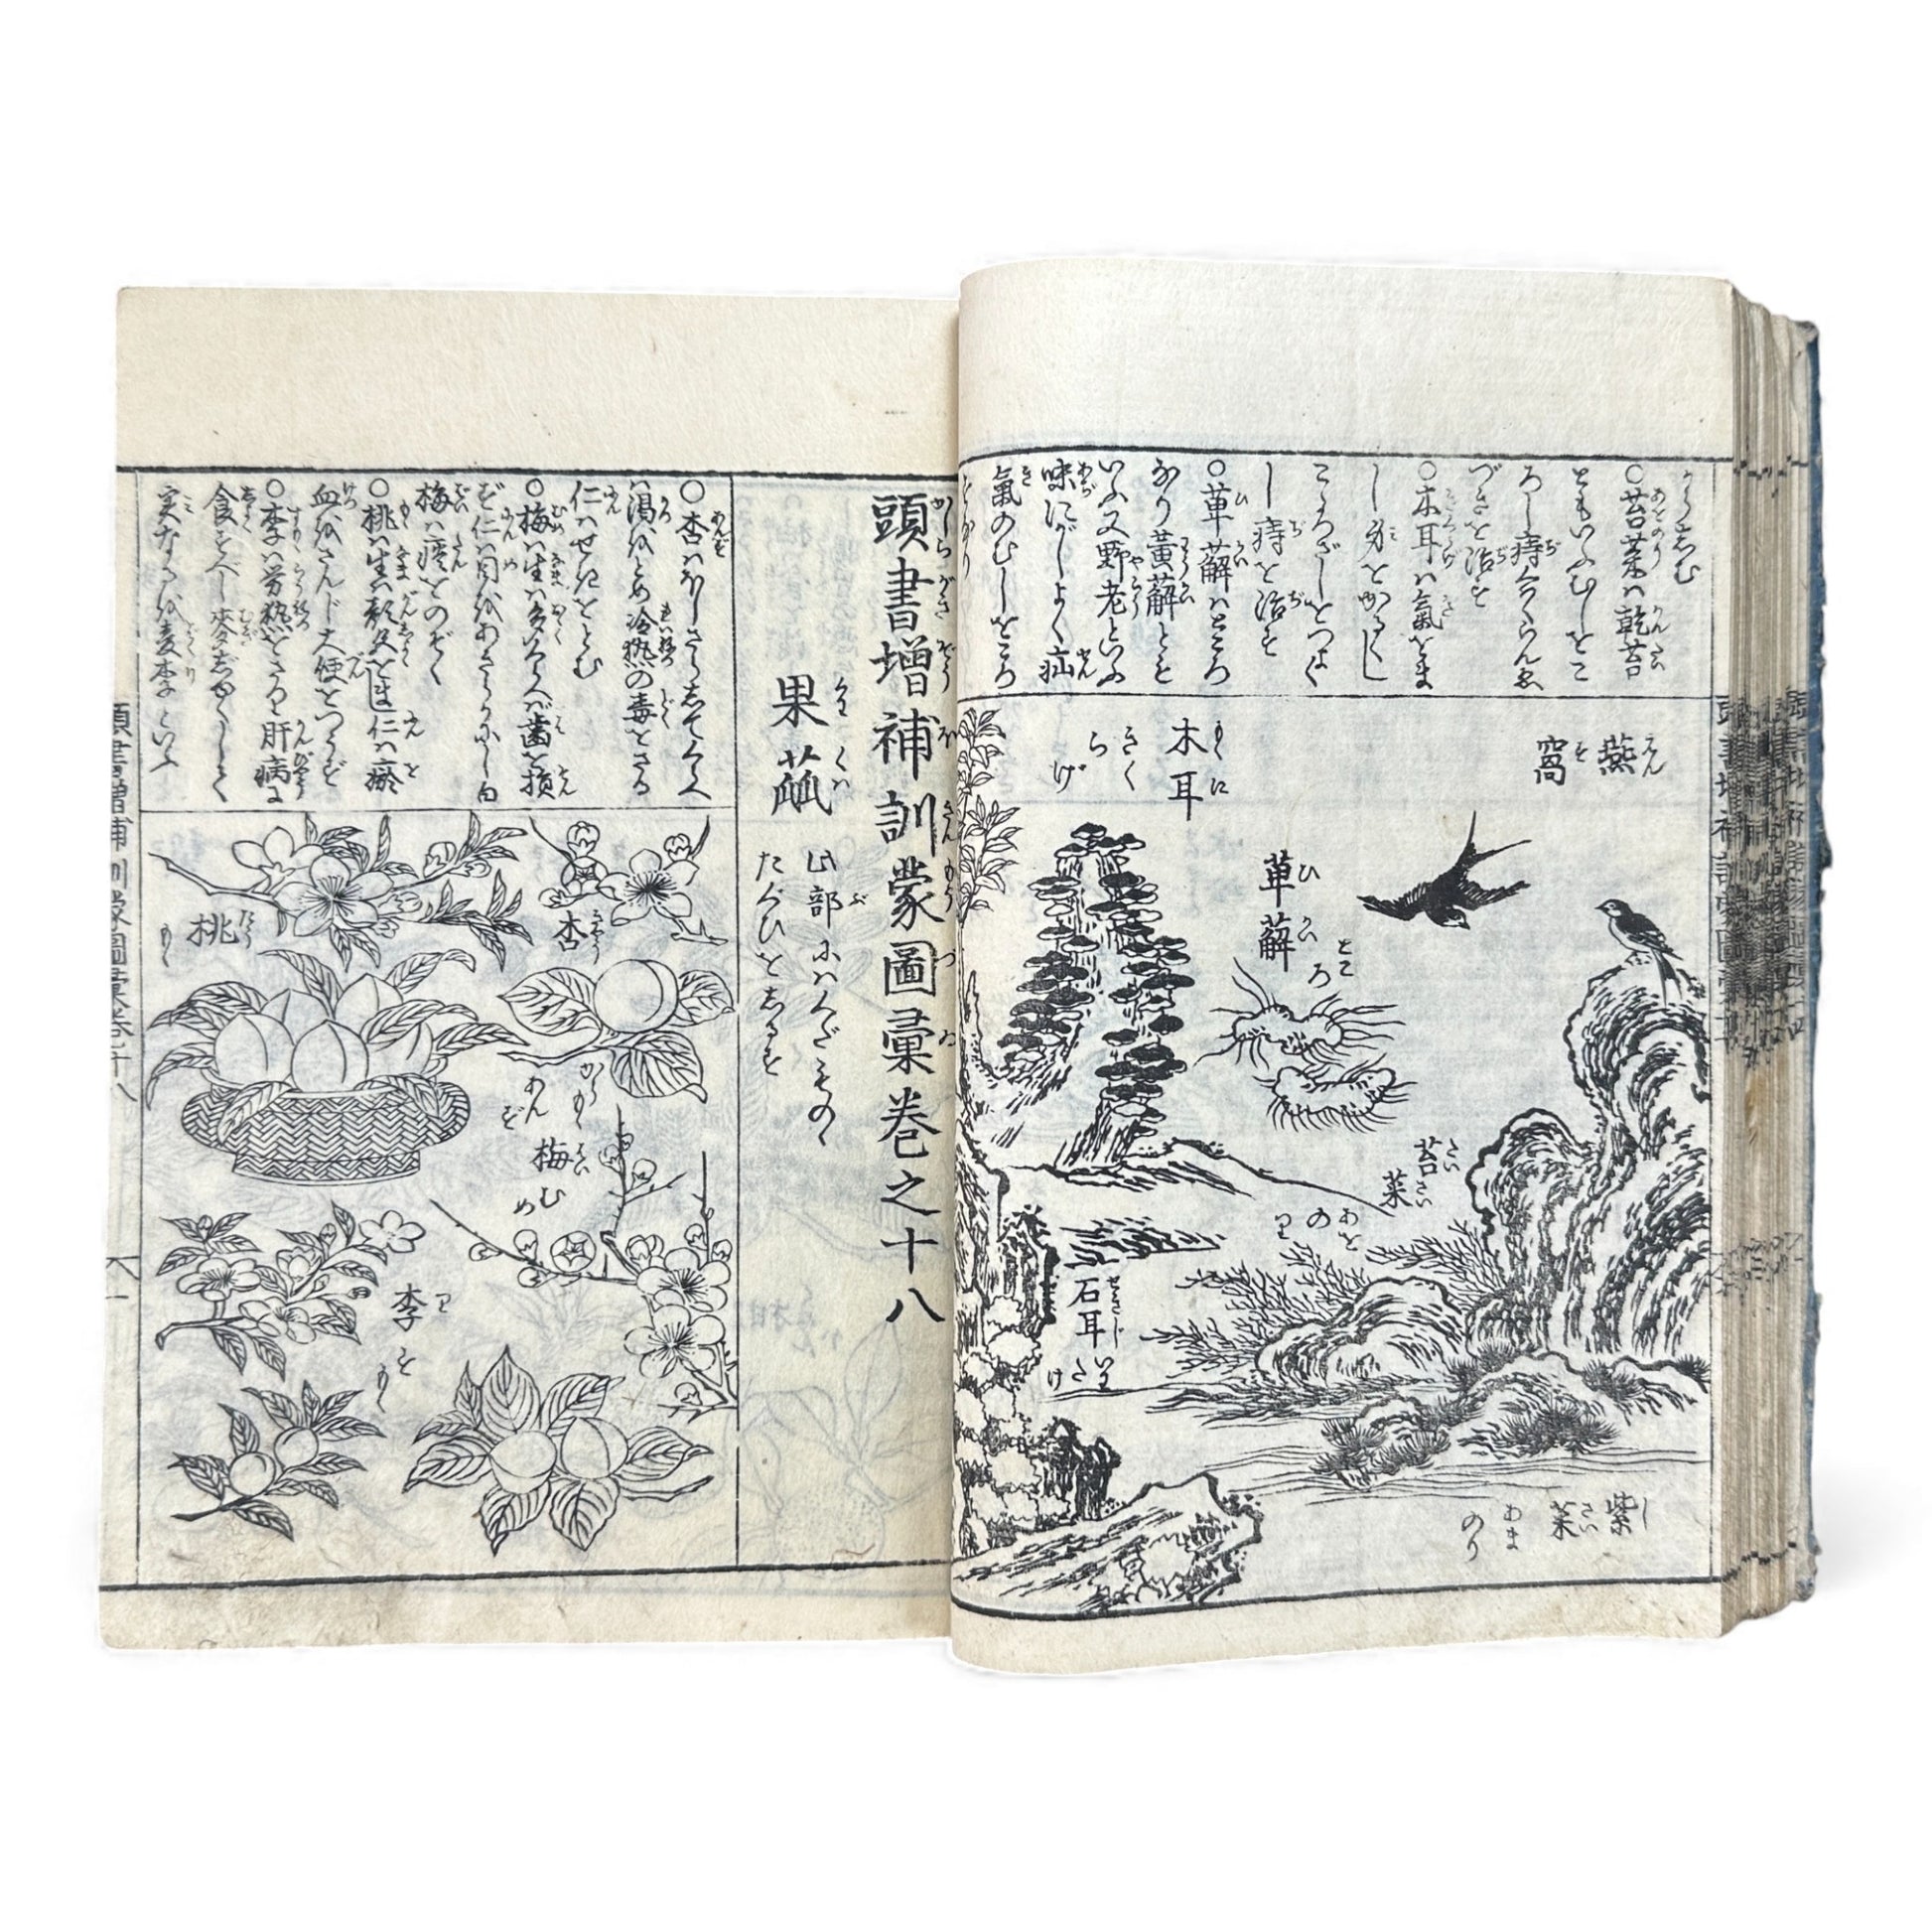 からしむ
○苔菜ハ乾苔
ともいふむしをこ
ろし痔
づきを治す
○木耳ハ氣をま
し身をかろくし
こゝろざしをつよく
し痔を治す
○萆薢ハところ
なり黄薢とも
いふ又野老といふ
味にがしよく疝
氣のむしをころ
燕窩
えんす
木耳
もくに
きくらげ
萆薢
ひかい
ところ
苔菜
たいさい
あをのり
石耳
せきじ
いはたけ
紫菜
しさい
あまのり
頭書增補訓蒙圖彙卷之十八
かしらがきぞうほきんもうづゐ
果蓏
くはくは
此部にハくだものゝ
たぐひをしるす
○杏ハほしさらして食へ
バ渇をとめ冷熱の毒をさる
仁ハせきをとむ
○梅ハ生ハ多く食へバ歯を損
梅ハ痰をのぞく
○桃ハ生ハ顔色をまし仁ハ瘀
血をさんじ大便をつうず
○李ハ労熱をさる肝病に
食すべし
実なるを麦李といふ
杏
からもゝ
あんず
桃
たう
もゝ
梅
ばい
むめ
李
り
すもゝ
頭書增補訓蒙圖彙卷十八